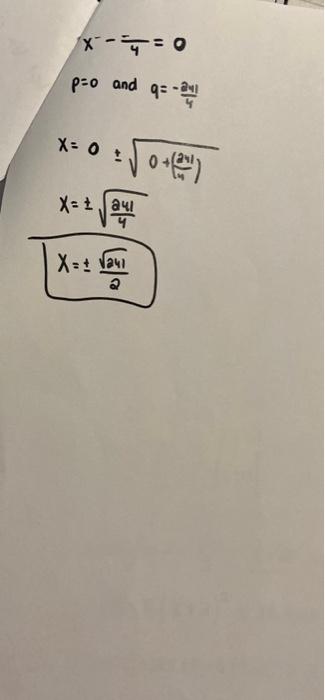 x - -/4 = 0
p=0 and q= - 241/4
X= 0 ± √(0+(241/4))
X= ± √(241/4)
X= ± √241/2